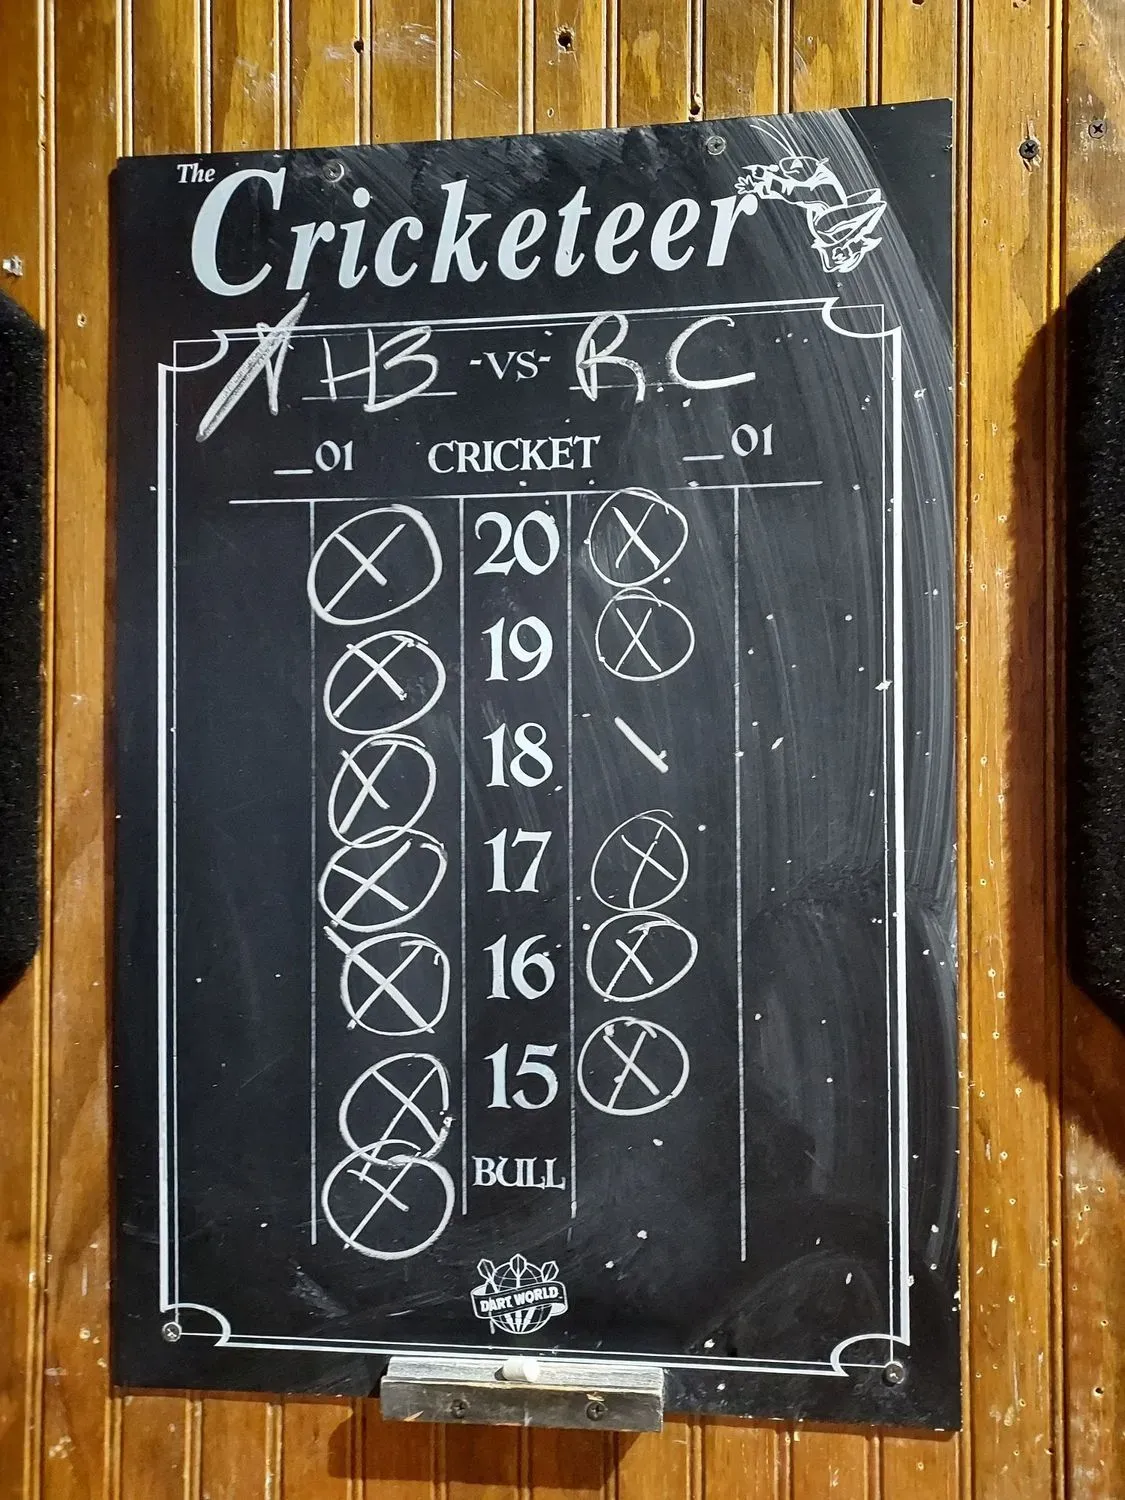 The
Cricketeer
HB -VS- RC
_01 CRICKET _01
20
19
18
17
16
15
BULL
DART WORLD